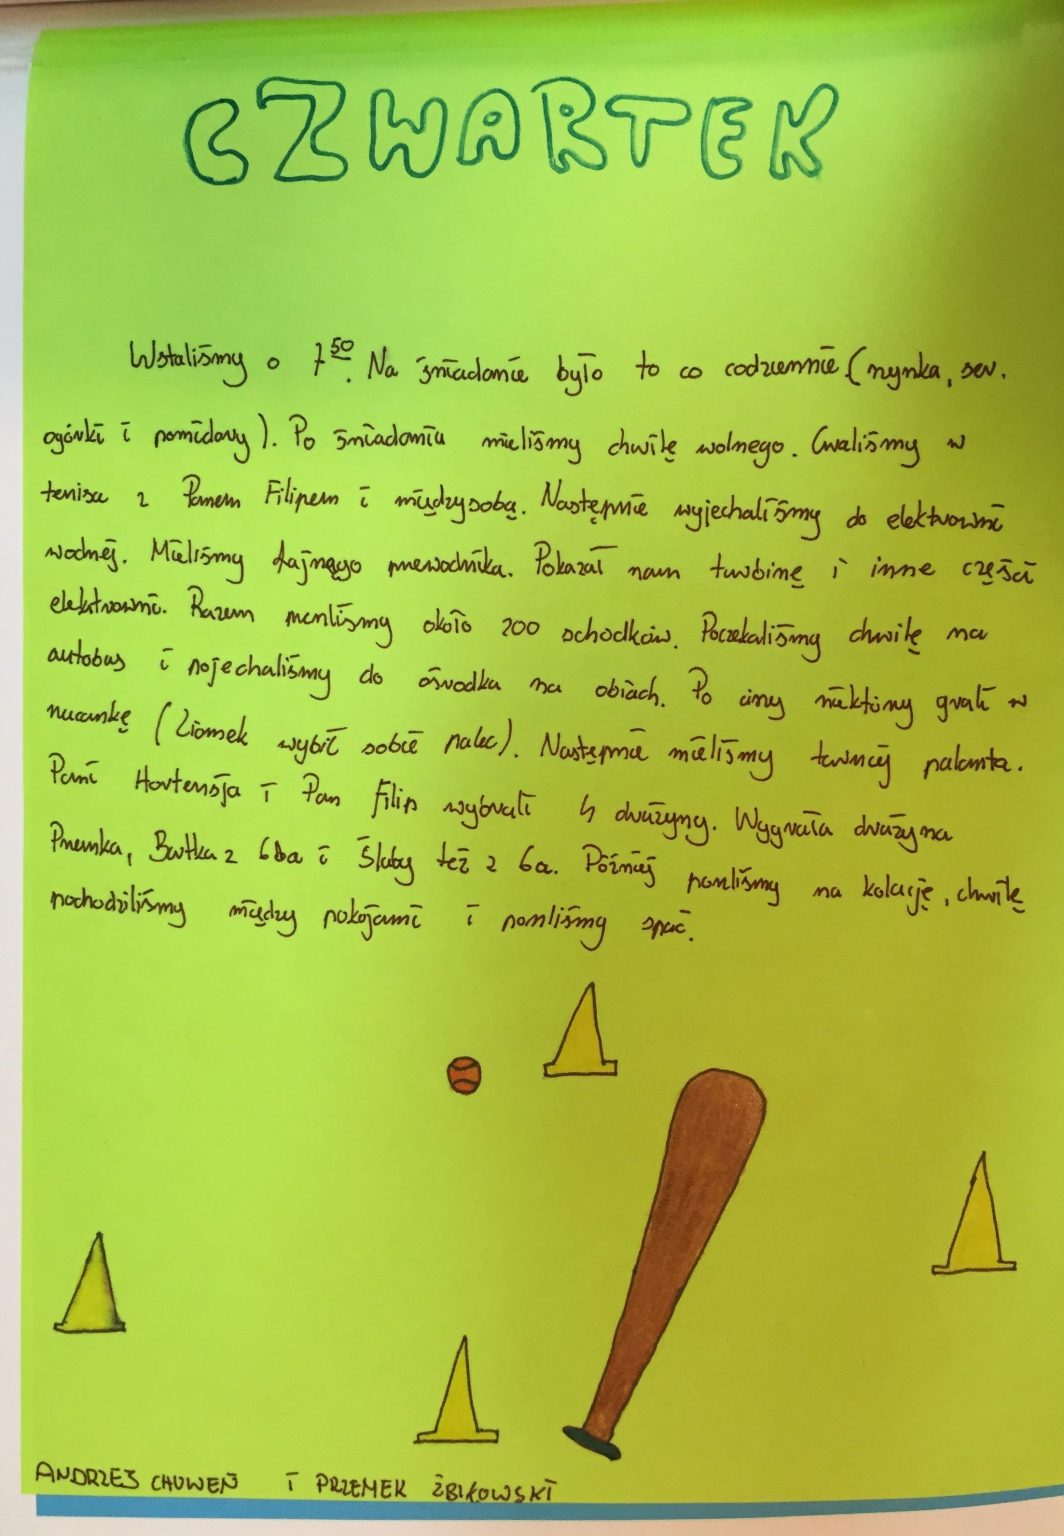 CZWARTEK
Wstaliśmy o 7⁵⁰. Na śniadanie było to co codziennie (szynka, ser.
ogórki i pomidory). Po śniadaniu mieliśmy chwilę wolnego. Graliśmy w
tenisa z Panem Filipem i międzysobą. Następnie wyjechaliśmy do elektrowni
wodnej. Mieliśmy fajnego przewodnika. Pokazał nam turbinę i inne części
elektrowni. Razem przeszliśmy około 200 schodków. Poczekaliśmy chwilę na
autobus i pojechaliśmy do ośrodka na obiach. Po ciszy niektórzy grali w
ruczankę (Ziomek wybił sobie palec). Następnie mieliśmy turniej palanta.
Pani Hortensja i Pan Filip wybrali 4 drużyny. Wygrała drużyna
Przemka, Bartka z 6ba i też z 6a. Później poszliśmy na kolację, chwilę
pochodziliśmy między pokojami i poszliśmy spać.
ANDRZEJ CHUWEŃ I PRZEMEK ŻBIKOWSKI